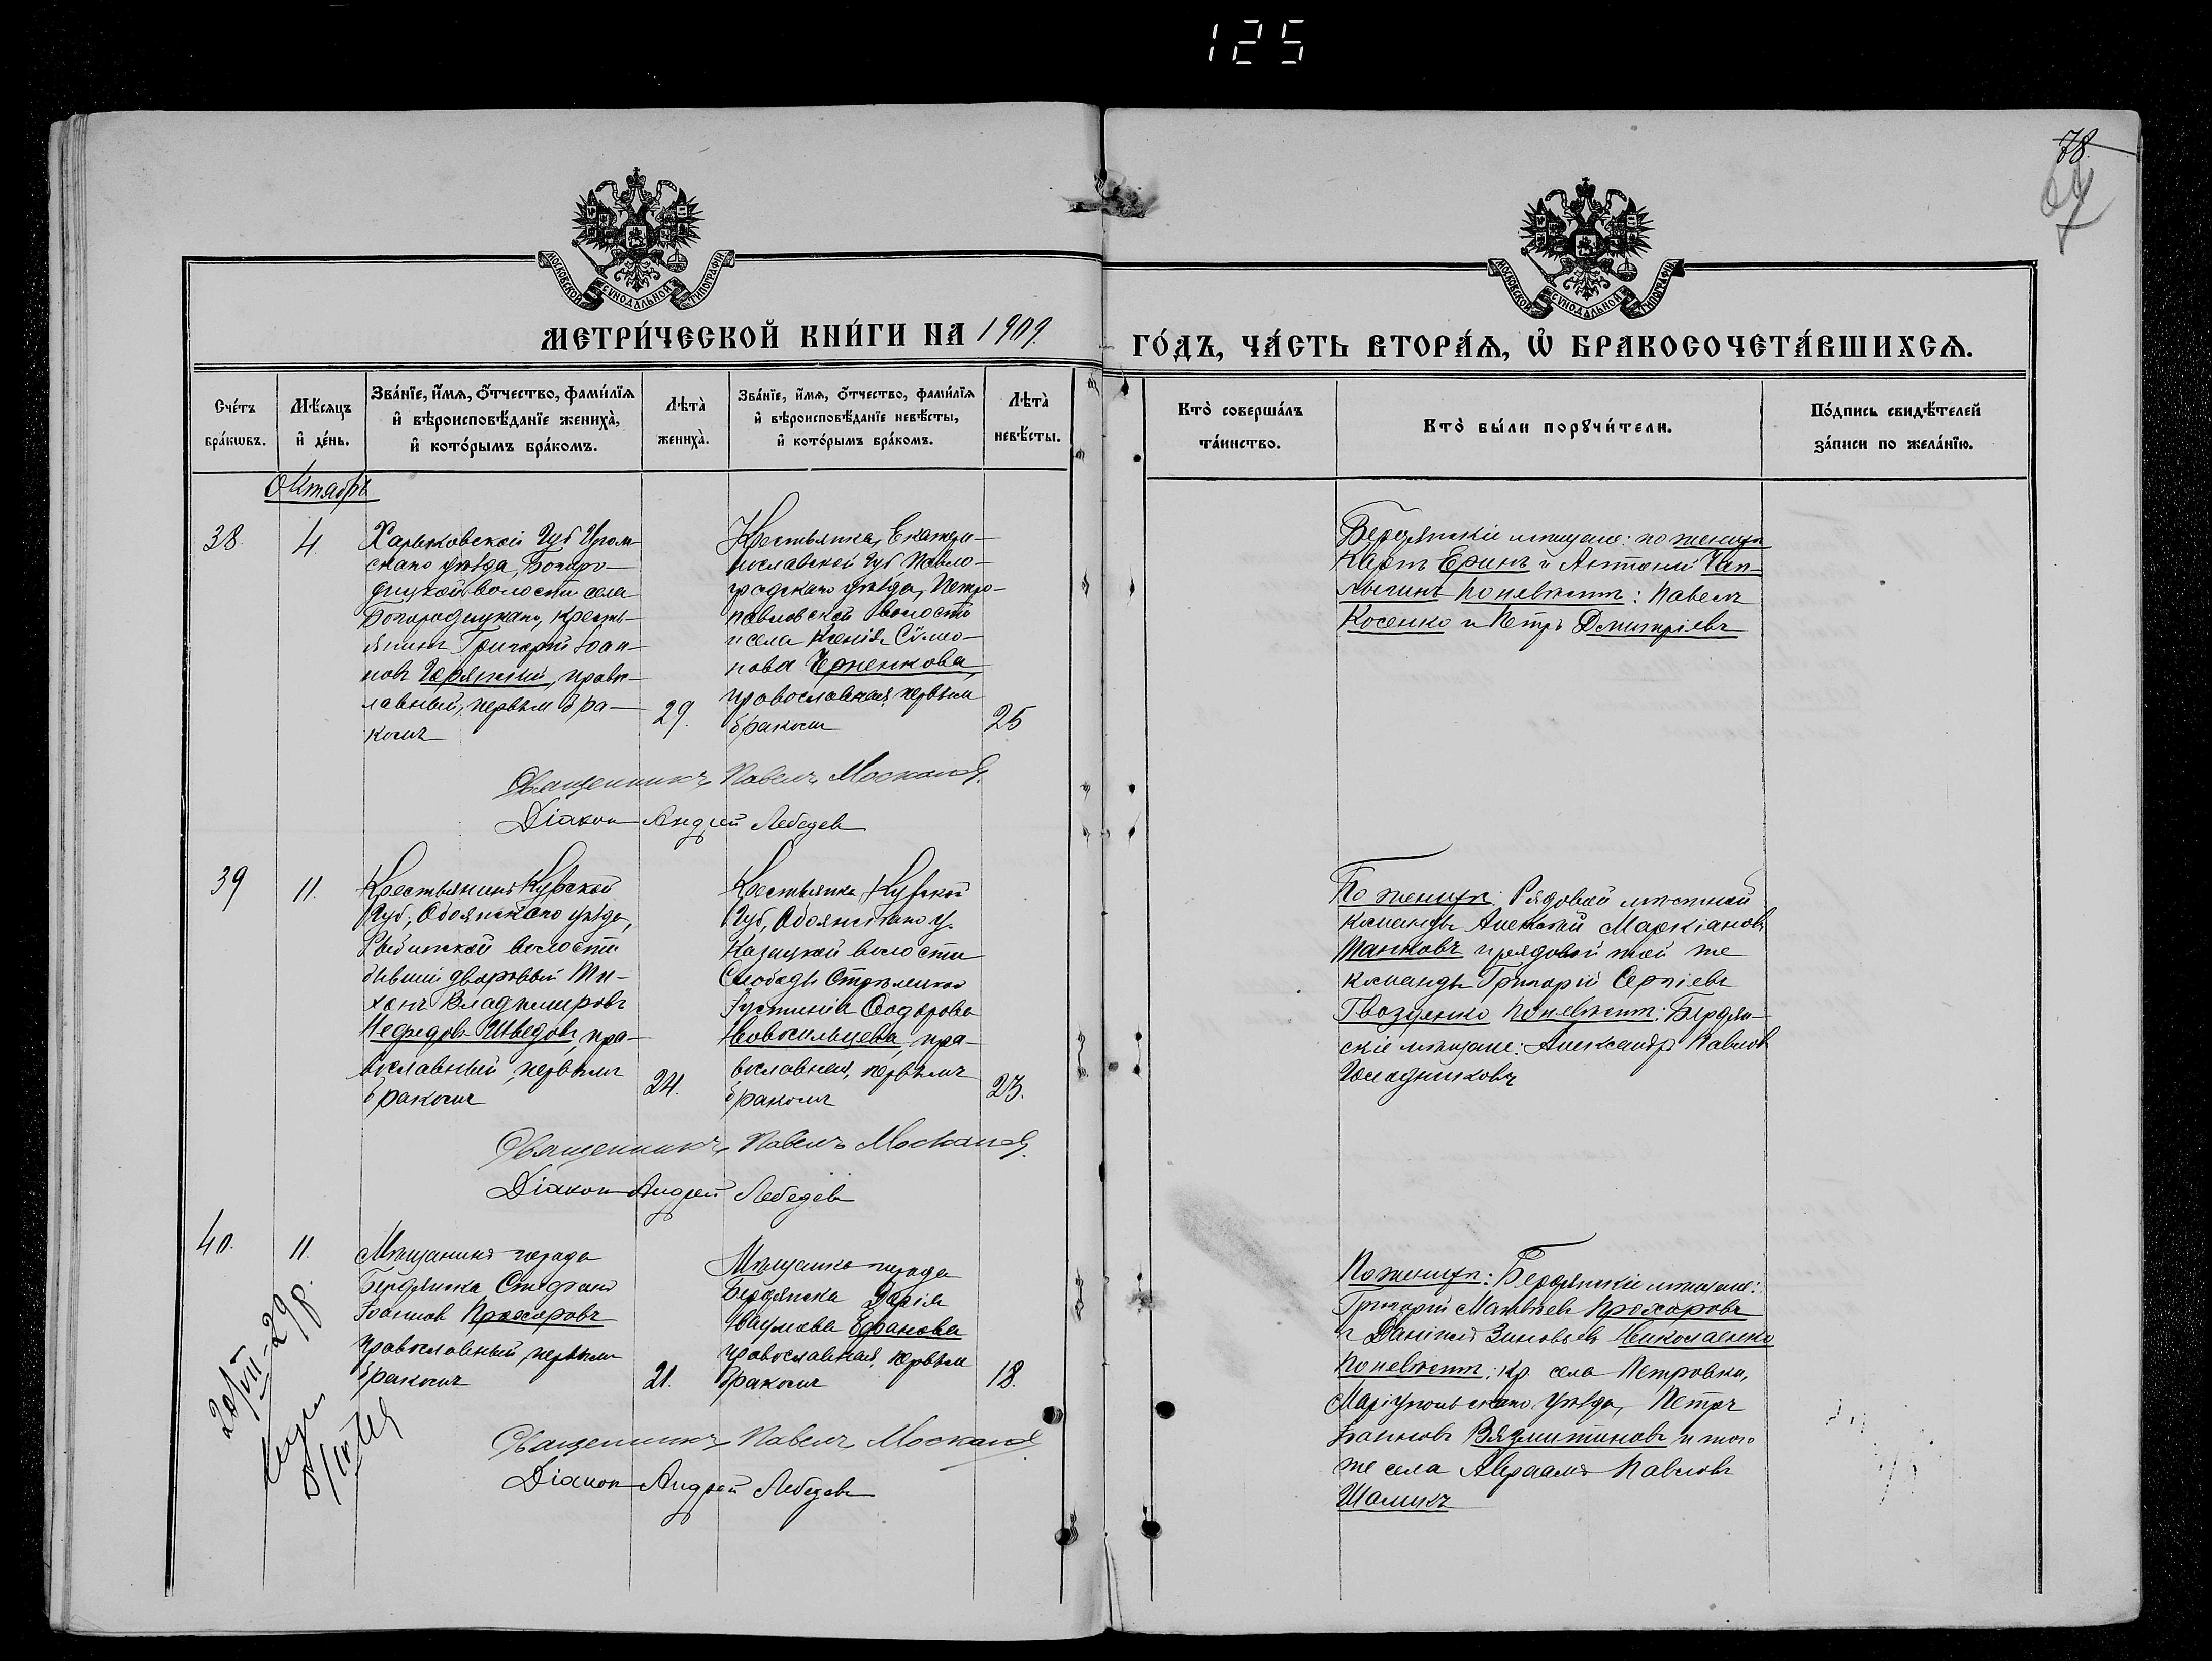 125
78.
МОСКОВСКОЙ СѴНОДАЛЬНОЙ ТИПОГРАФІИ
МОСКОВСКОЙ СѴНОДАЛЬНОЙ ТИПОГРАФІИ
МЕТРИ́ЧЕСКОЙ КНИ́ГИ НА 1909.
ГО́ДЪ, ЧА́СТЬ ВТОРА́Ѧ, Ѡ҆ БРАКОСОЧЕТА́ВШИХСѦ.
Сче́тъ
бра́кѡвъ.
Мѣ́сяцъ
и҆ де́нь.
Зва́нїе, и҆́мѧ, ѻ҆́тчество, фами́лїѧ
и҆ вѣроисповѣ́данїе жениха̀,
и҆ кото́рымъ бра́комъ.
Лѣта̀
жениха̀.
Зва́нїе, и҆́мѧ, ѻ҆́тчество, фами́лїѧ
и҆ вѣроисповѣ́данїе невѣ́сты,
и҆ кото́рымъ бра́комъ.
Лѣта̀
невѣ́сты.
Кто̀ соверша́лъ
та́инство.
Кто̀ бы́ли порꙋчи́тели.
По́дпись свидѣ́телей
за́писи по жела́нїю.
Октябрь
38.
4.
Харьковской Губ Изюм-
скаго уѣзда, Богоро-
дицкой волости села
Богородицкаго, кресть-
янинъ Григорій Іоан-
новъ, право-
лавный, первымъ бра-
комъ
29.
Крестьянка, Екатери-
нославской Губ Павло-
градскаго уѣзда, Петро-
павловской волости
и села Ксенія Сѵмео-
нова Черненкова,
православная, первым
бракомъ
25
Священникъ Павелъ
Діакон Андрей Лебедев
Бердянскіе мѣщане: по жениху
Карпъ Еринъ и Антоній Чап-
лыгинъ по невѣстѣ: Павелъ
Косенко и Петръ Дмитріевъ
39
11.
Крестьянинъ Курской
Губ., Обоянскаго уѣзда,
Рыбинской волости
бывшій дворовый Ти-
хонъ Владимировъ
Нефедовъ-Шведовъ, пра-
вославный, первымъ
бракомъ
24.
Крестьянка, Курской
Губ, Обоянскаго у.
Казацкой волости
Слободы Стрѣлецкой
Іустинія Ѳеодорова
Новосильцева, пра-
вославная, первымъ
бракомъ
23.
Священникъ Павелъ
Діакон Андрей Лебедев
По жениху: Рядовой мѣстной
команды Алексѣй Маркіановъ
Танковъ и рядовой той же
команды Григорій Сергіевъ
Гвозденко по невѣстѣ: Бердян-
скіе мѣщане: Александръ Павлов
40.
11.
Мѣщанинъ города
Бердянска Стефанъ
Іоаннов Прохоровъ
православный, первымъ
бракомъ
21.
Мѣщанка города
Бердянска Дарія
Наумова Ефанова
православная, первым
бракомъ
18.
Священникъ Павелъ
Діакон Андрей Лебедев
По жениху: Бердянскіе мѣщане:
Григорій Матвѣевъ Прохоровъ
и Даніилъ Зиновьевъ Николаенко
по невѣстѣ: кр. села Петровки,
Маріупольскаго уѣзда, Петръ
Іоанновъ Вязмитиновъ и того
же села Авраамъ Павловъ
Шаликъ